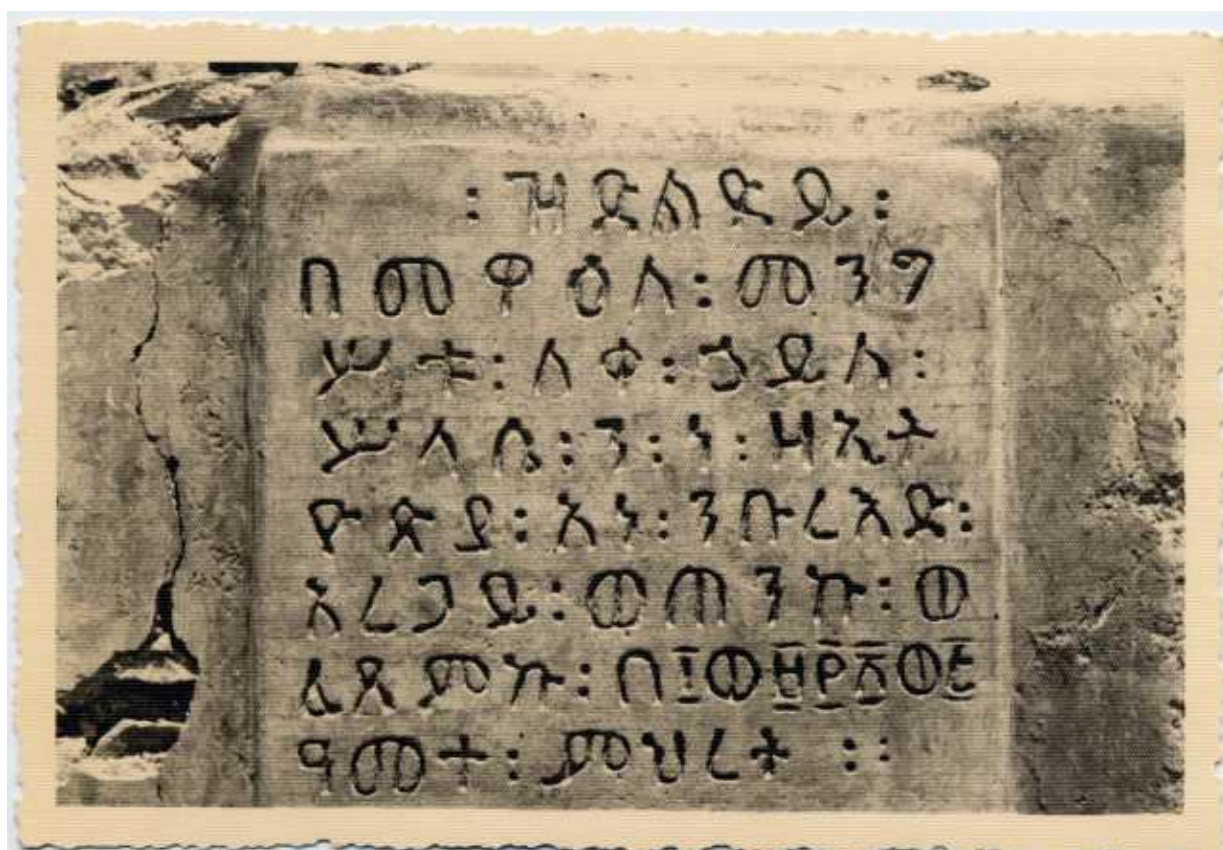 ፡ ዝድልድይ ፡
በመዋዕለ ፡ መንግ
ሥቱ ፡ ለቀ ፡ ኃይለ ፡
ሥላሴ ፡ ን ፡ ነ ፡ ዘኢት
ዮጵያ ፡ አነ ፡ ንቡረእድ ፡
አረጋይ ፡ ወጠንኩ ፡ ወ
ፈጸምኩ ፡ በ፲ወ፱፻፳ወ፭
ዓመተ ፡ ምህረት ።